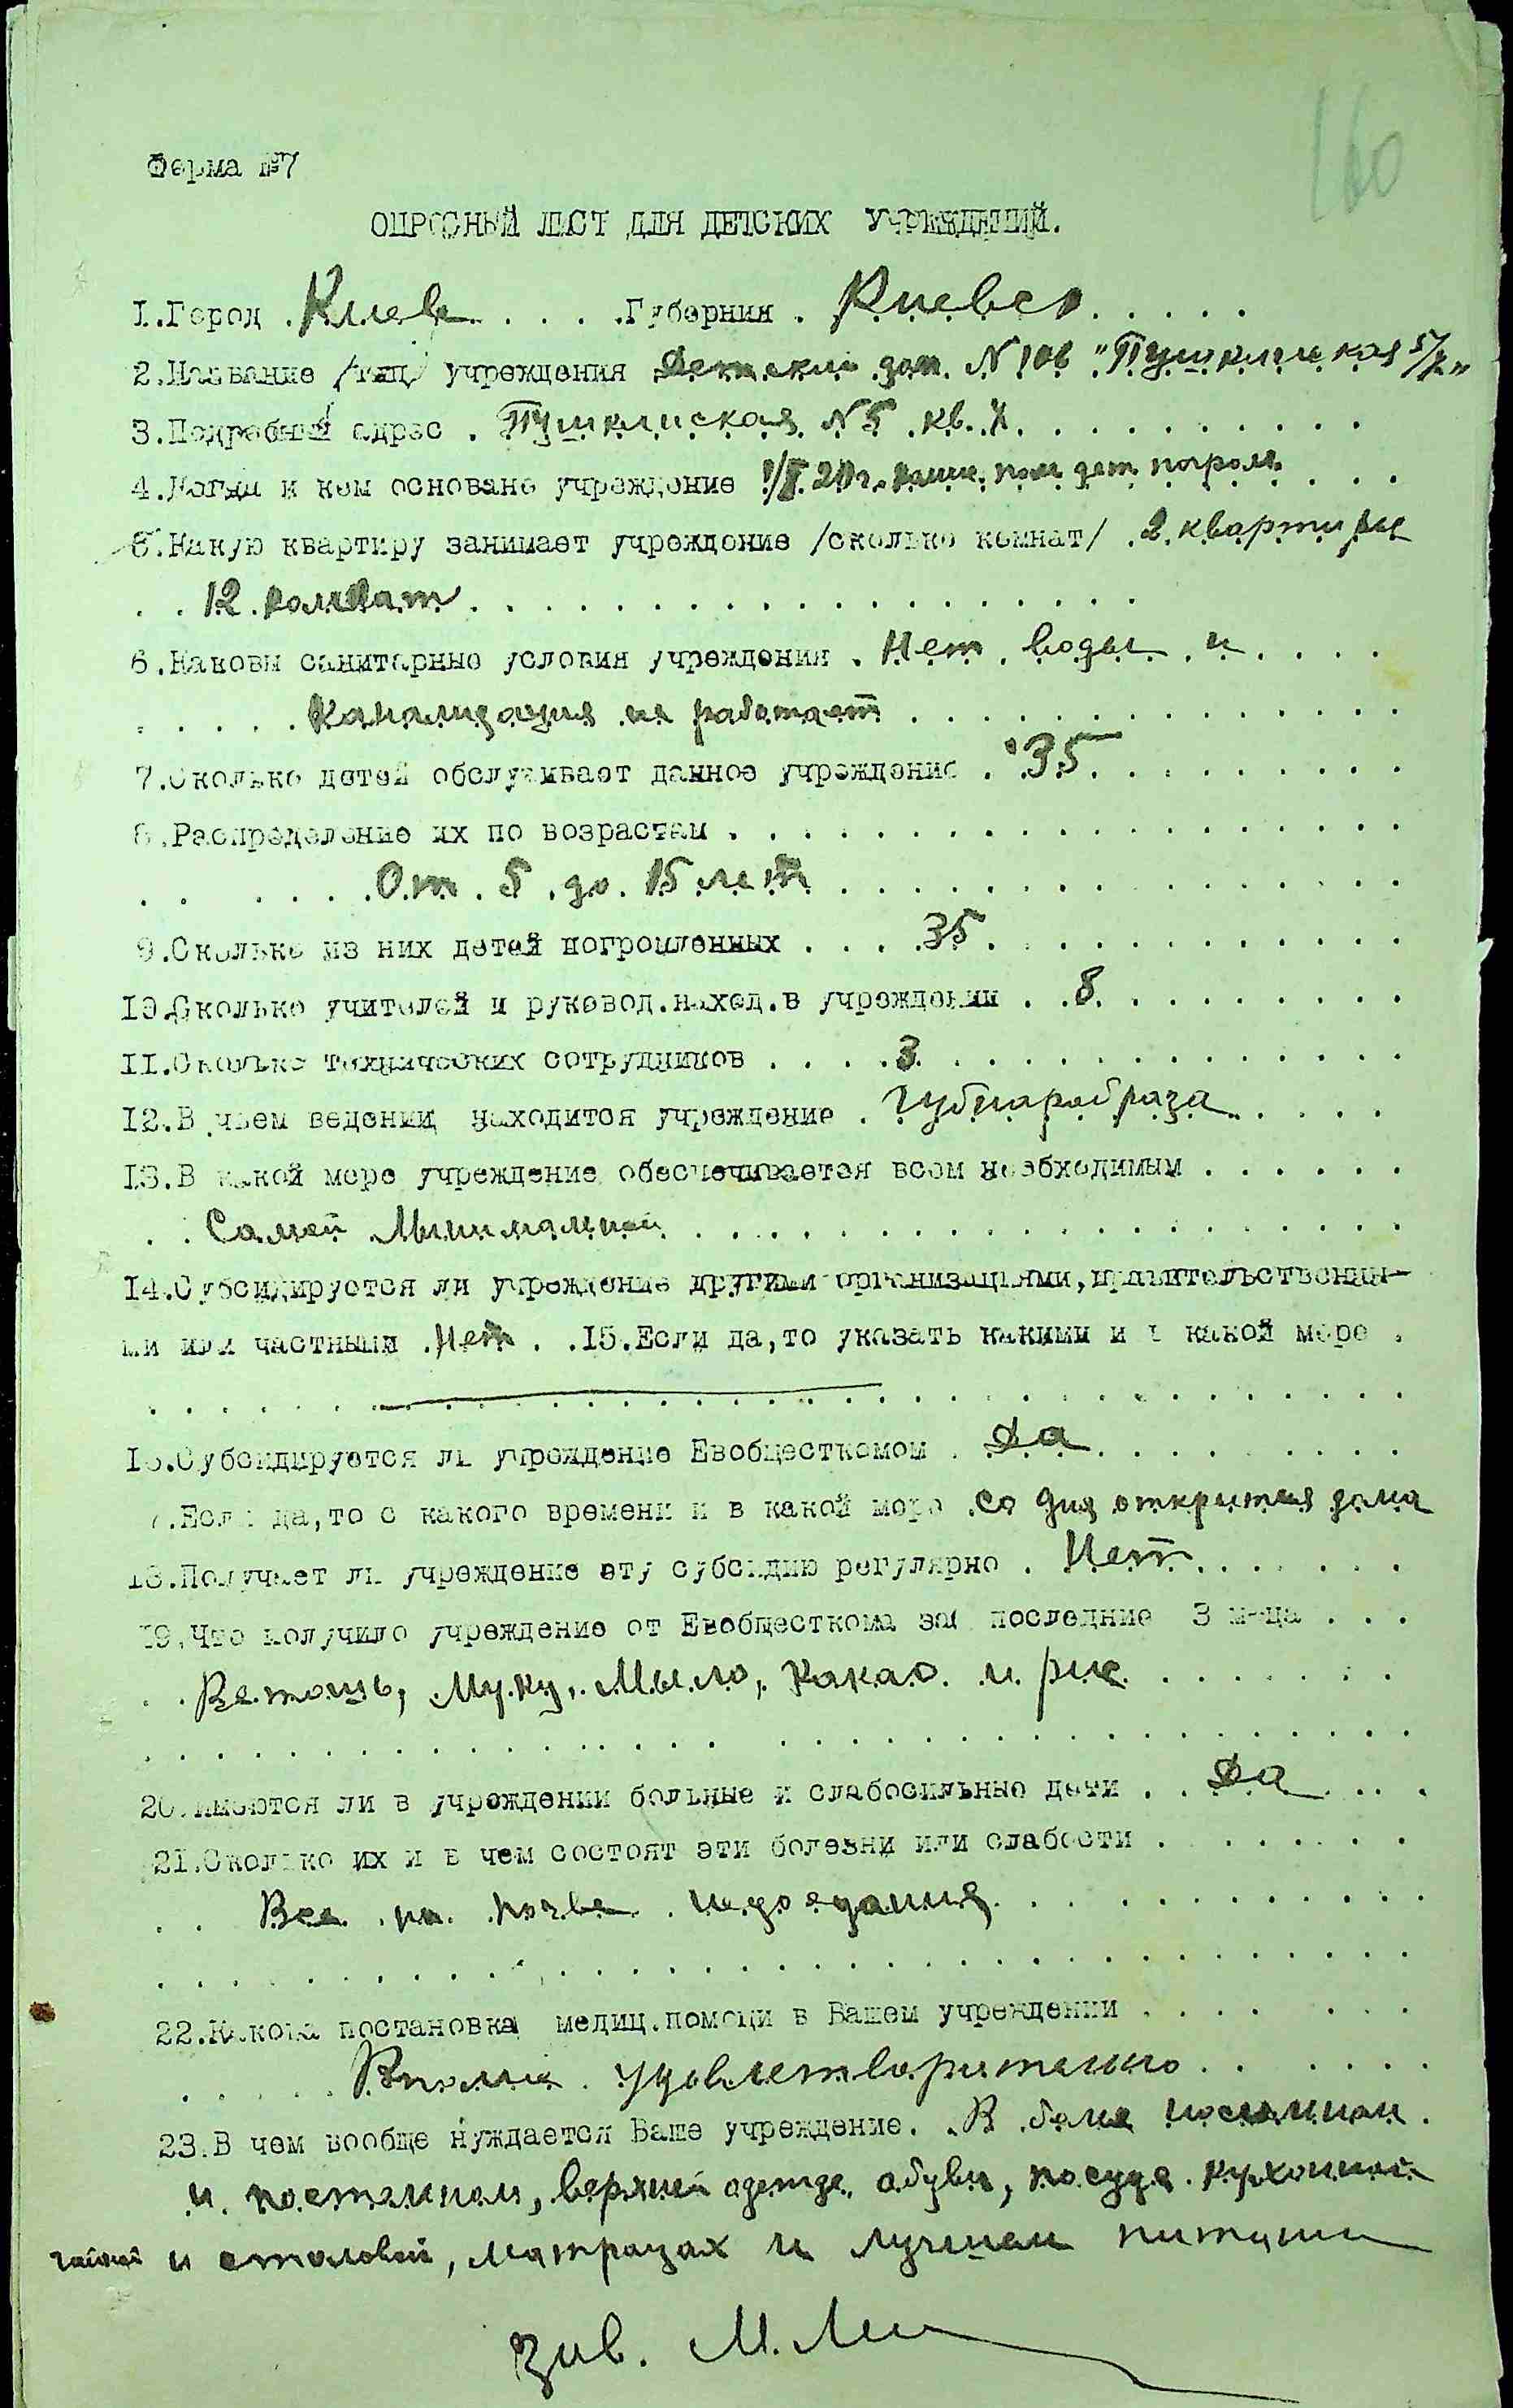 160
Форма №7
ОПРОСНЫЙ ЛИСТ ДЛЯ ДЕТСКИХ УЧРЕЖДЕНИЙ.
1.Город . Киев . . . . .Губерния . Киевск . . . . .
2.Название /тип/ учреждения Детский дом N 106 "Пушкинская 5/
3.Подробный адрес . Пушкинская N 5 кв. . . . . . . . . . .
4.Когда и кем основано учреждение 20 г. пом. дет. погром. . . .
5.Какую квартиру занимает учреждение /сколько комнат/ . 2 квартиры
. . 12 комнат . . . . . . . . . . . . . . . . . .
6.Каковы санитарные условия учреждения . Нет воды и . . . .
. . . . . Канализация не работает . . . . . . . . . . . . .
7.Сколько детей обслуживает данное учреждение . 35 . . . . . . . .
8.Распределение их по возрастам . . . . . . . . . . . . . . . . . .
. . . . . . . От 5 до 15 лет . . . . . . . . . . . . . . .
9.Сколько из них детей погромленных . . . . 35 . . . . . . . . . . .
10.Сколько учителей и руковод.наход.в учреждении . . 8 . . . . . . . .
11.Сколько технических сотрудников . . . . 3 . . . . . . . . . . . . .
12.В чьем ведении находится учреждение . Губнаробраза . . . .
13.В какой мере учреждение обеспечивается всем необходимым . . . . . .
. . Самой Минимальной . . . . . . . . . . . . . . . . . . .
14.Субсидируется ли учреждение другими организациями,правительственны-
ми или частными . Нет . . 15.Если да,то указать какими и в какой мере .
. . . . . . . . . . . . . . . . . . . . . . . . . . . . . . . .
16.Субсидируется ли учреждение Евобщесткомом . Да . . . . . . . .
7.Если да,то с какого времени и в какой мере . Со дня открытия дома
18.Получает ли учреждение эту субсидию регулярно . Нет . . . . . .
19.Что получило учреждение от Евобщесткома за последние 3 м-ца . . .
. . Ветошь, Муку, Мыло, Какао и рис . . . . . . .
. . . . . . . . . . . . . . . . . . . . . . . . . . . . . . . .
20.Имеются ли в учреждении больные и слабосильные дети . . Да . . . .
21.Сколько их и в чем состоят эти болезни или слабости . . . . . . . .
. . Все на почве недоедания . . . . . . . . . . . .
. . . . . . . . . . . . . . . . . . . . . . . . . . . . . . . .
22.Какова постановка медиц.помощи в Вашем учреждении . . . . . . .
. . . . . Вполне удовлетворительно . . . . . .
23.В чем вообще нуждается Ваше учреждение. . В белье носильном .
и постельном, верхней одежде, обуви, посуде кухонной
чайной и столовой, матрацах и лучшем питании
Зав. М.